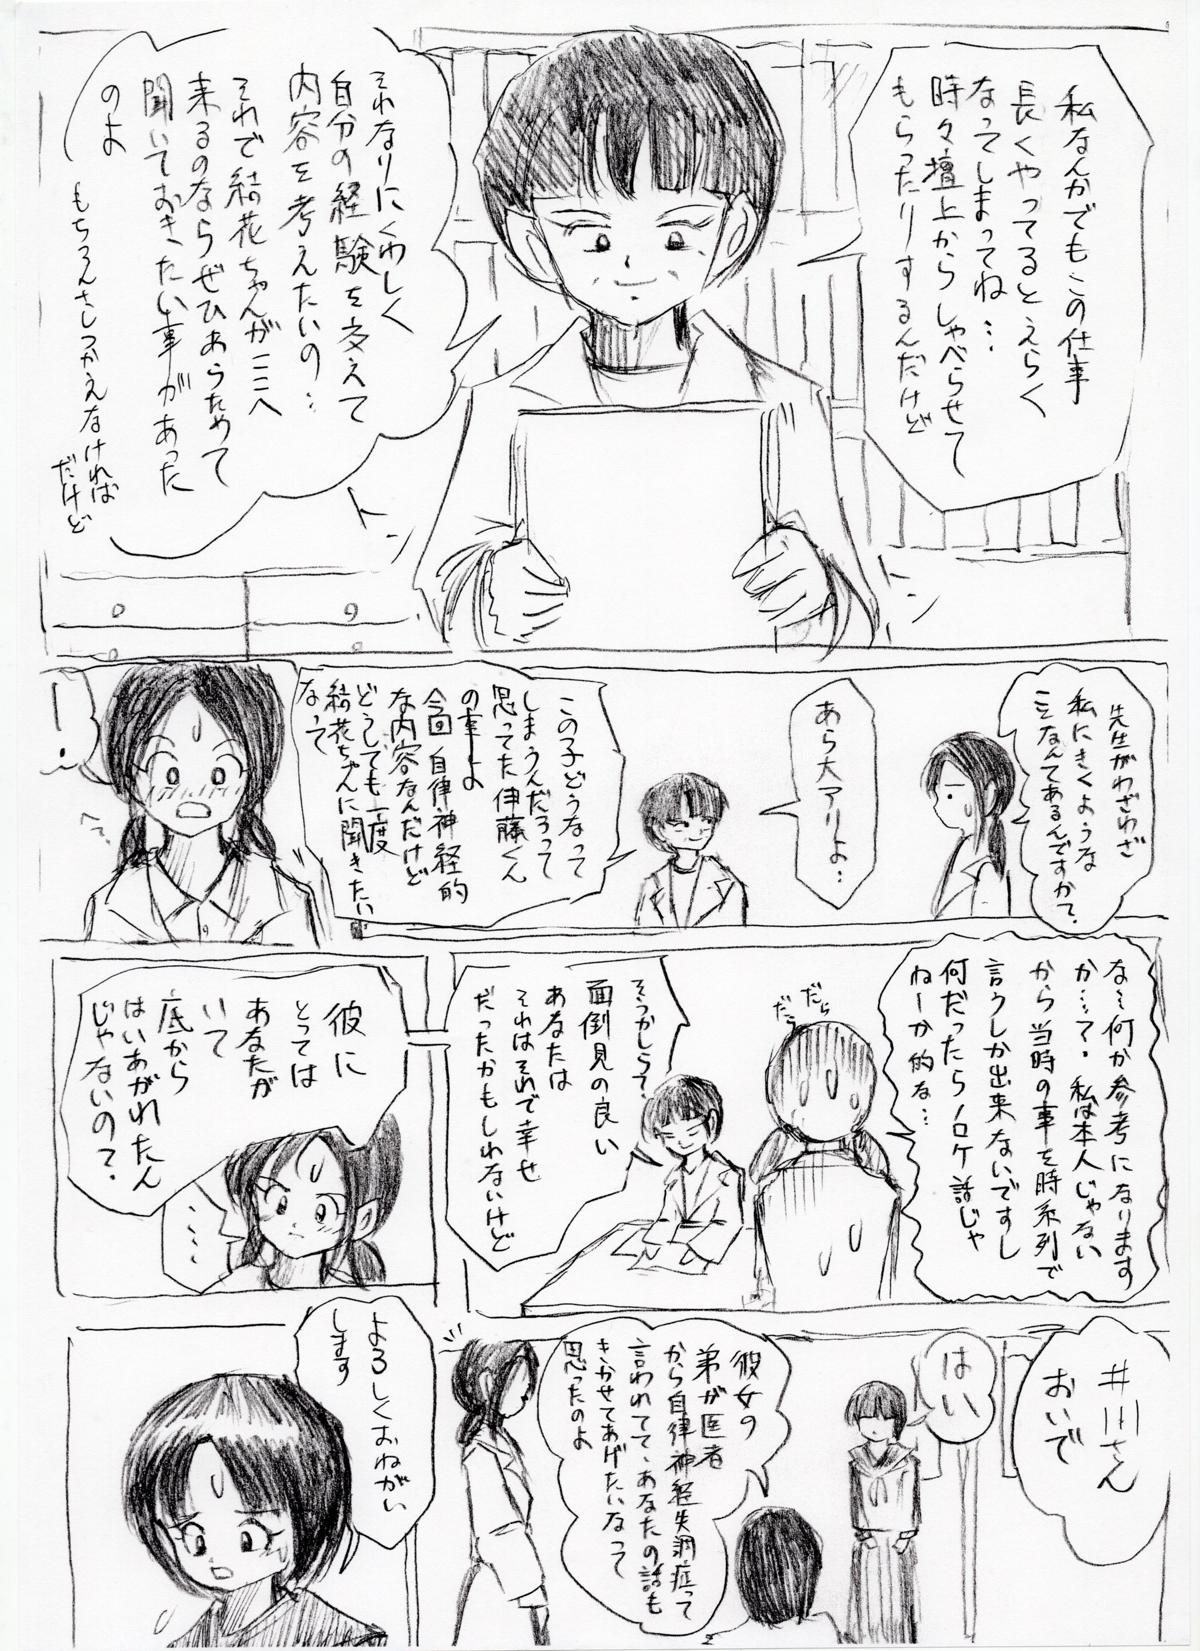 私なんかでもこの仕事
長くやってるとえらく
なってしまってね…
時々壇上からしゃべらせて
もらったりするんだけど
それなりにくわしく
自分の経験を交えて
内容を考えたいの…
それで結花ちゃんがここへ
来るのならぜひあらためて
聞いておきたい事があった
のよ
もちろんさしつかえなければ
だけど
トン
トン
先生がわざわざ
私にきくような
事なんてあるんですか?
あら大アリよ…
この子どうなって
しまうんだろうって
思ってた伊藤くん
の事よ
今回自律神経的
な内容なんだけど
どうしても一度
結花ちゃんに聞きたい
なって
!
な…何か参考になります
か…?私は本人じゃない
から当時の事を時系列で
言うしか出来ないですし
何だったらノロケ話じゃ
ねーか的な…
だら
だら
そうかしら?
面倒見の良い
あなたは
それはそれで幸せ
だったかもしれないけど
彼に
とっては
あなたが
いて
底から
はいあがれたん
じゃないの?
……
井川さん
おいで
はい
彼女の
弟が医者
から自律神経失調症って
言われてて、あなたの話も
きかせてあげたいなって
思ったのよ
よろしくおねがい
します